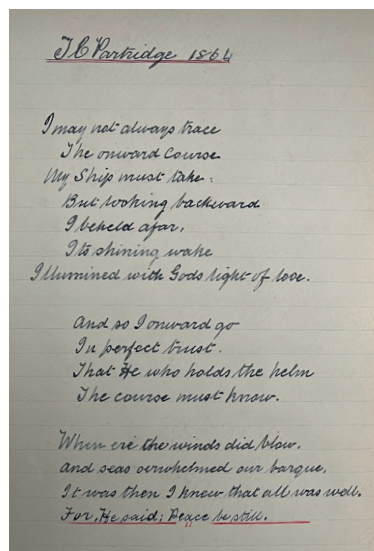 J C Partridge 1864
I may not always trace
The onward Course
My Ship must take:
But looking backward
I beheld afar,
Its shining wake
Illumined with Gods light of love.
And so I onward go
In perfect trust.
That He who holds the helm
The course must know.
When ere the winds did blow.
And seas overwhelmed our barque,
It was then I knew that all was well.
For, He said; Peace be still.